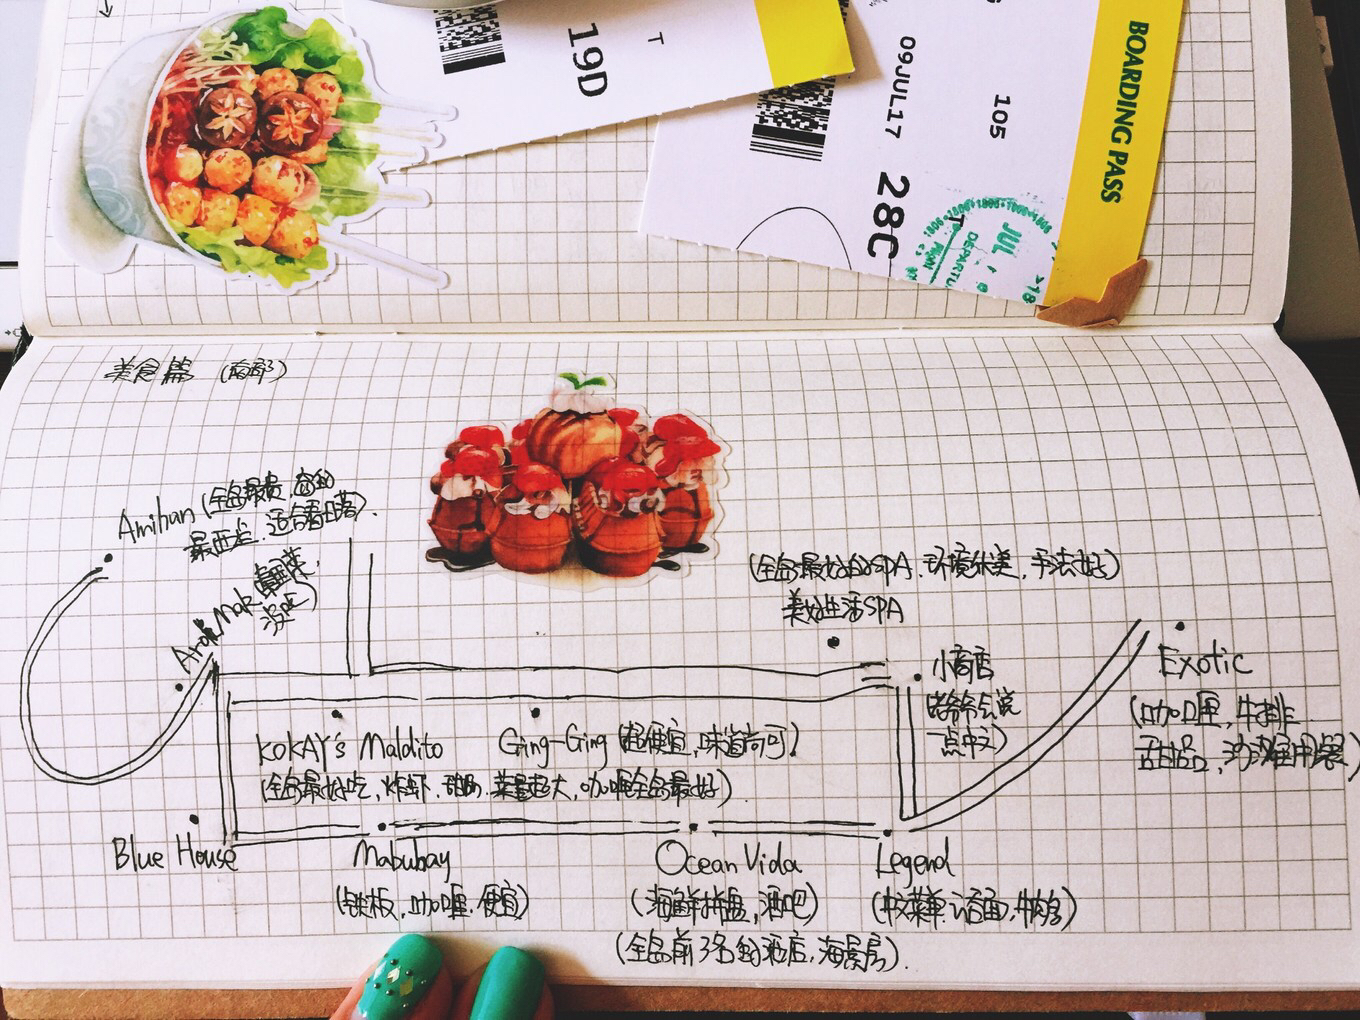 19D
T
09JUL17
105
28C
BOARDING PASS
JUL
美食篇 (南部)
Amihan (全岛最贵.
最西边.适合看日落).
KOKAY's Maldito
(全岛最好吃,炸虾,菜量超大,咖喱全岛最好)
Ging-Ging (超便宜,味道尚可)
(全岛最好的SPA.环境优美,手法好)
美好生活SPA
小商店
爷爷会说
一点中文)
Exotic
(咖喱,牛排
甜品,沙滩用餐)
Blue House
Mabubay
(铁板,咖喱.便宜)
Ocean Vida
(海鲜拼盘,酒吧)
(全岛前3名的酒店,海景房).
Legend
(中文菜单